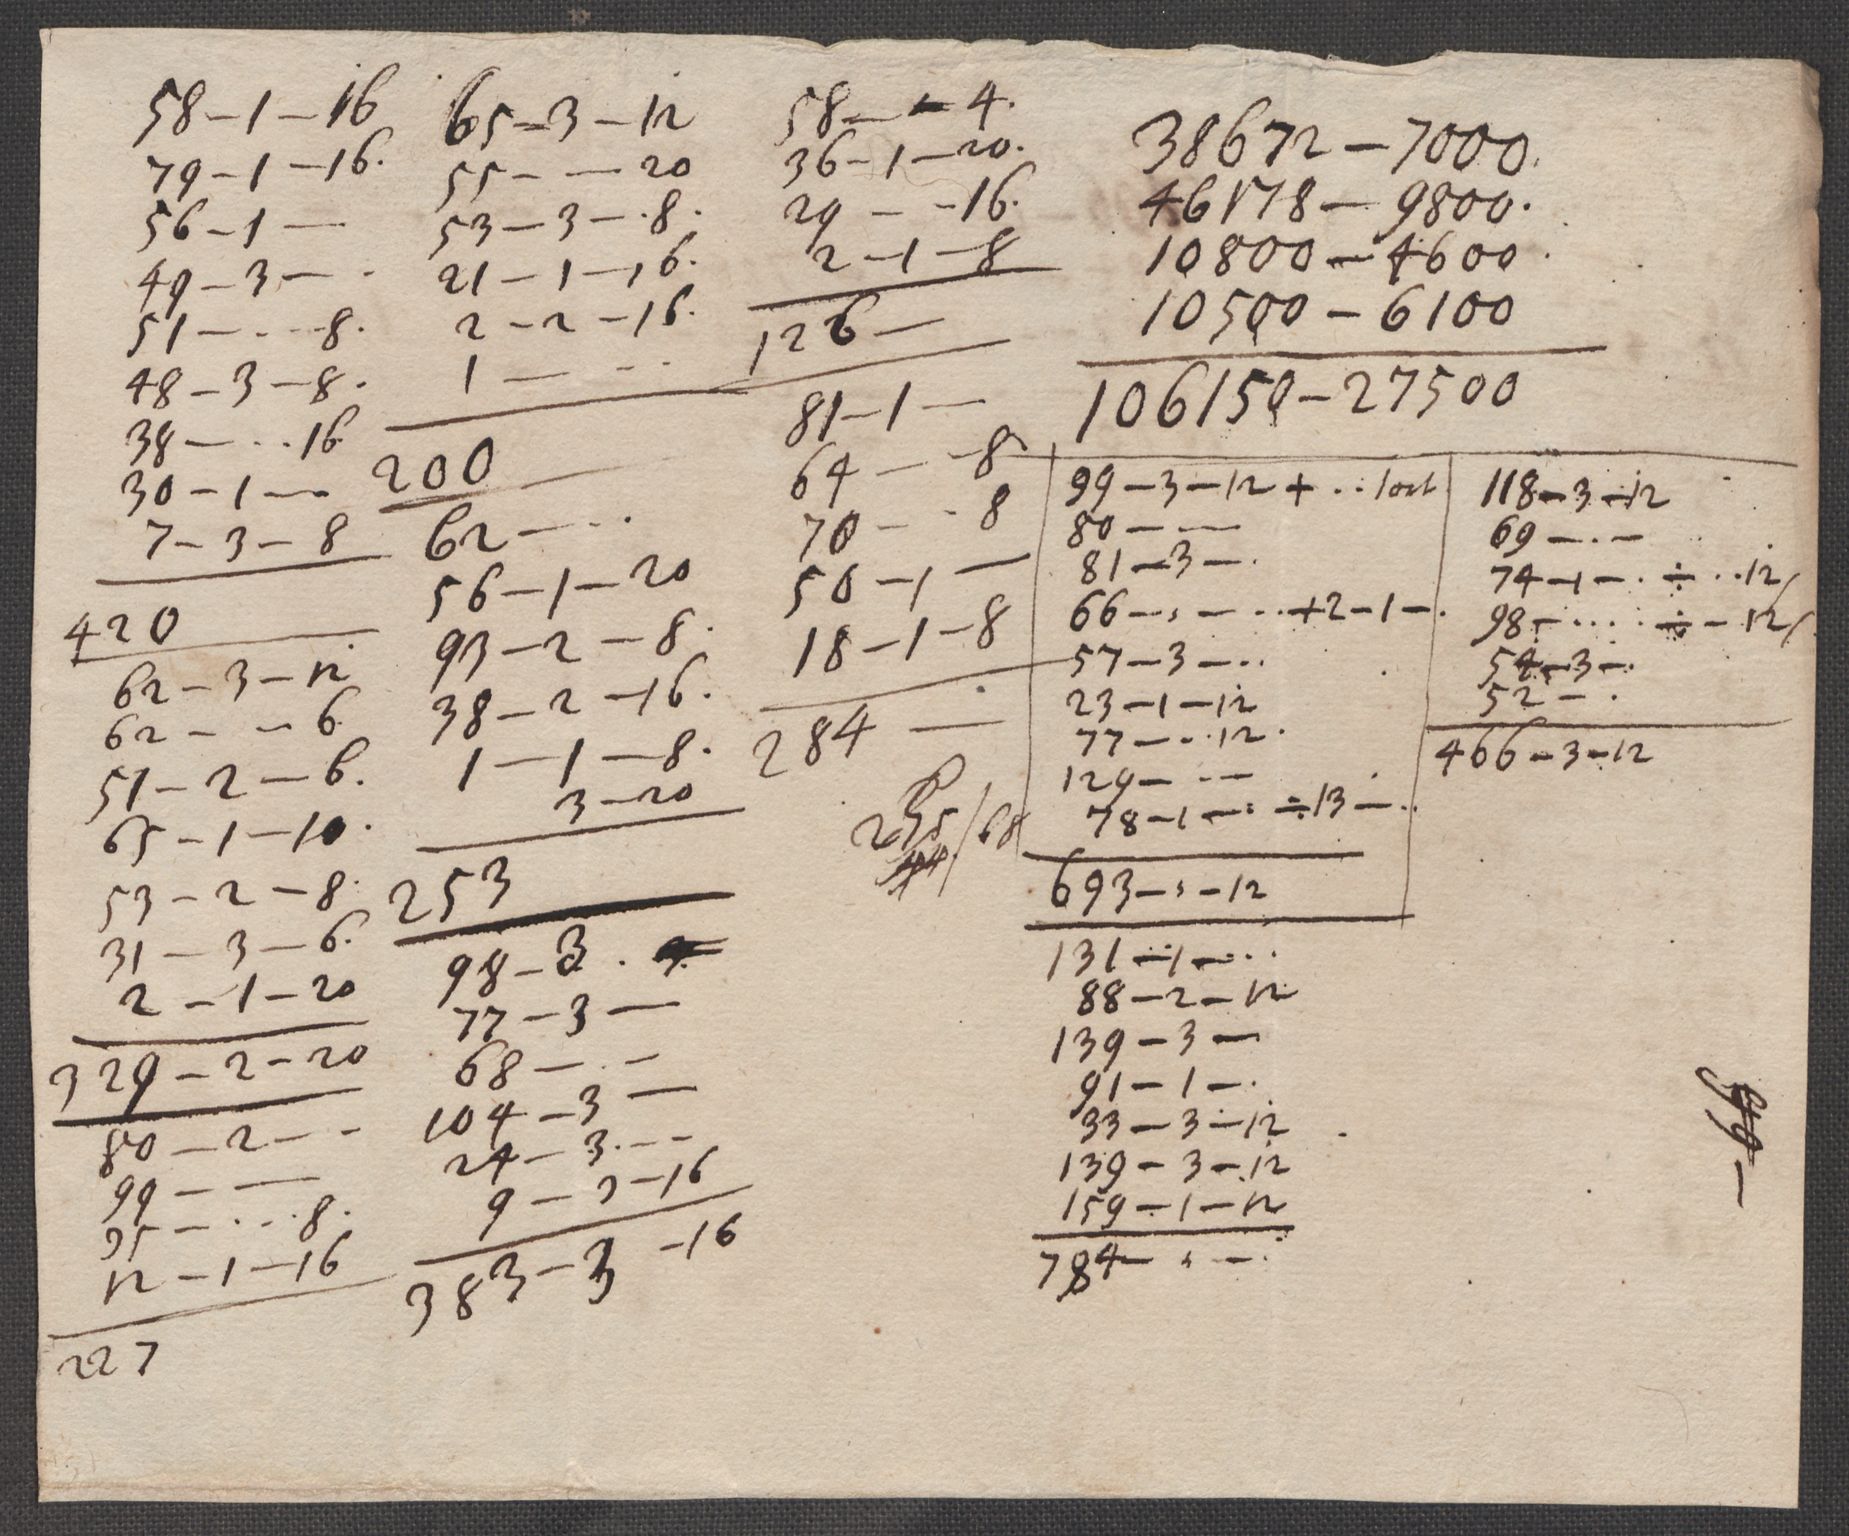 58-1-16
79-1-16.
56-1-
49-3-.
51-..-8.
48-3-8.
38-..16
30-1-..
7-3-8
420
62-3-12
62--6
51-2-6.
65-1-10.
53-2-8.
31-3-6.
2-1-20
329-2-20
80-2--
99--
35-..-8.
12-1-16
227
65-3-12
55--20
53-3-.8.
21-1-16.
2-2-16.
1-..
200
62-..
56-1-20
93-2-8.
38-2-16.
1-1-8.
3-20
253
98-3.
77-3-
68-.-
104-3-
24-3.--
9-3-16
383-3-16
58--4.
36-1-20.
29--16.
2-1-8
126-
81-1-
64--8
70--8
50-1-
18-1-8
284-
235/68
38672-7000.
46178-9800.
10800-4600.
10500-6100
106150-27500
99-3-12+..1ort
80--
81-3-.
66-.-..+2-1-.
57-3-..
23-1-12
77-..12.
129-.-
78-1-.÷13-..
693-.-12
131-1-..
88-2-12
139-3-
91-1-.
33-3-12
139-3-12
159-1-12
784-.-.
118-3-12
69-.-
74-1-.÷..12/
98-....÷-12/.
54-3-.
52-.
466-3-12